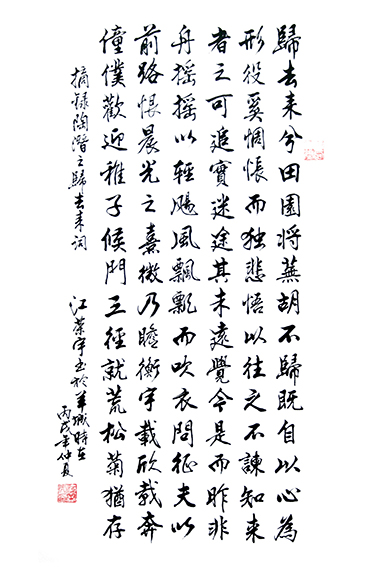 歸去来兮田園将蕪胡不歸既自以心為
形役奚惆悵而独悲悟以往之不諫知来
者之可追實迷途其未遠覺今是而昨非
舟摇摇以軽颺風飄飄而吹衣問征夫以
前路恨晨光之熹微乃瞻衡宇載欣載奔
僮僕歡迎稚子候門三徑就荒松菊猶存
摘録陶潜之歸去来词
江荣宇书於羊城時在
丙戌年仲夏